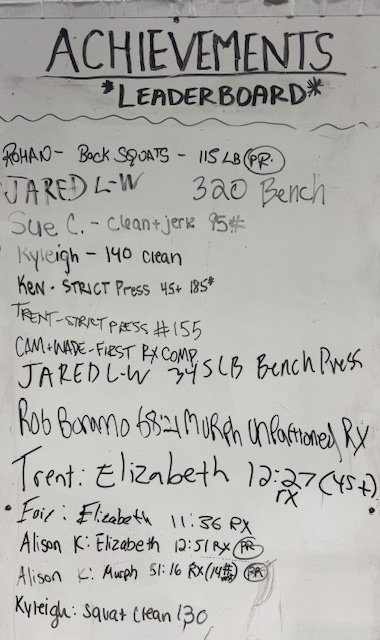 ACHIEVEMENTS
*LEADERBOARD*
ROHAN- Back SQUATS - 115 LB PR.
JARED L-W 320 Bench
Sue C. - Clean+jerk 95#
Kyleigh - 140 clean
KEN - STRICT Press 45+ 185#
TRENT-STRICT PRESS #155
CAM+WADE-FIRST RX COMP
JARED L-W 345 LB Bench Press
Rob Boramo 68:21 MURPH Unpartioned RX
Trent: Elizabeth 12:27 (45+)
RX
Elizabeth 11:36 RX
Alison K: Elizabeth 12:51 RX PR
Alison K: Murph 51:16 RX (14#) PR
Kyleigh: Squat clean 130